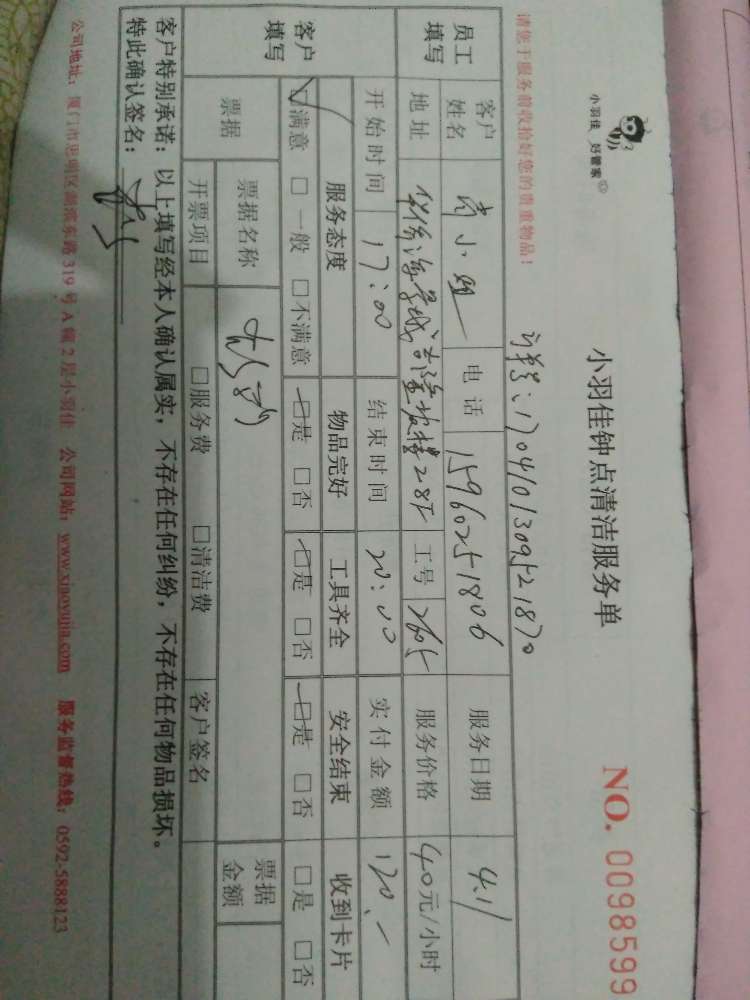 小羽佳 好管家
小羽佳钟点清洁服务单
NO. 0098599
请您于服务前收拾好您的贵重物品!
订单号:17040130952187
员工填写 客户姓名 小姐 电话 15960251806 服务日期 4.1
地址 28F 工号 2605 服务价格 40元/小时
开始时间 17:00 结束时间 20:00 实付金额 120.-
客户填写 服务态度 物品完好 工具齐全 安全结束 收到卡片
☑满意 □一般 □不满意 ☑是 □否 ☑是 □否 ☑是 □否 □是 □否
票据 票据名称 票据金额
开票项目 □服务费 □清洁费 客户签名
客户特别承诺:以上填写经本人确认属实,不存在任何纠纷,不存在任何物品损坏。
特此确认签名:
公司地址:厦门市思明区湖滨东路319号A幢2层小羽佳 公司网站:www.xiaoyujia.com 服务监督热线:0592-5888123